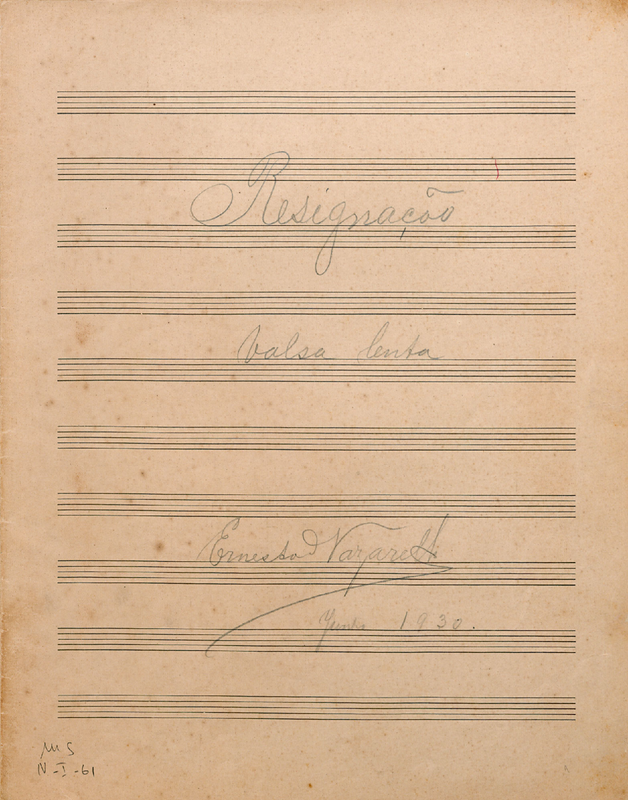 Resignação
Valsa lenta
Ernesto Nazareth
Junho 1930.
MS
N-I-61